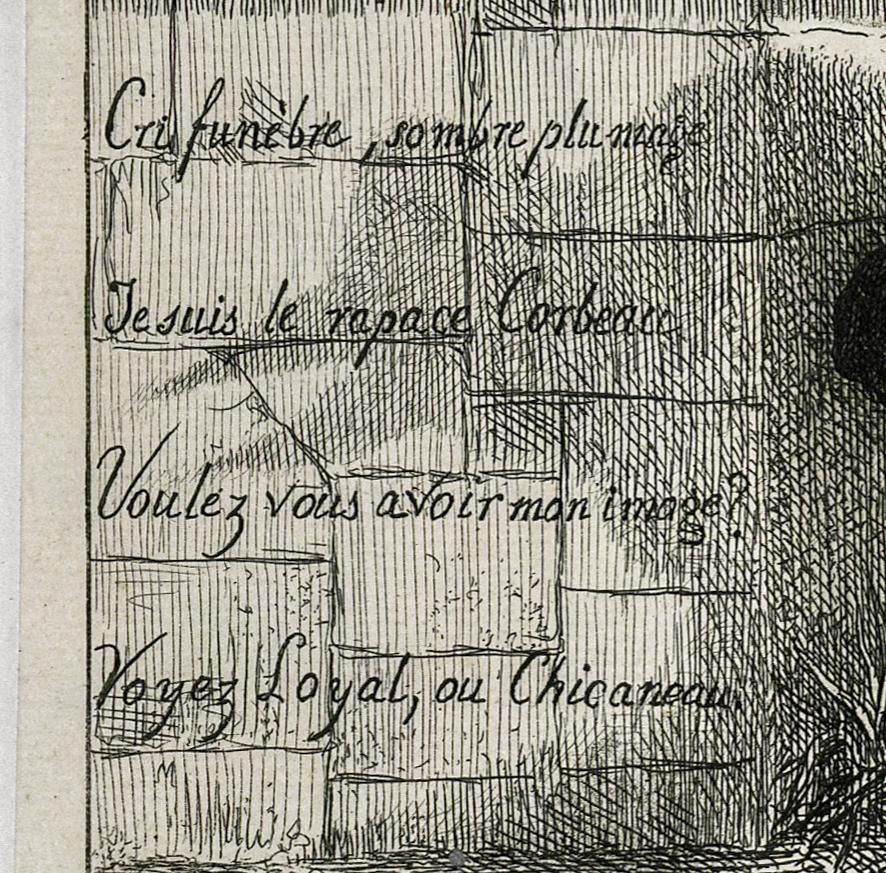 Cri funèbre, sombre plumage
Je suis le rapace Corbeau
Voulez vous avoir mon image?
Voyez Loyal, ou Chicaneau.